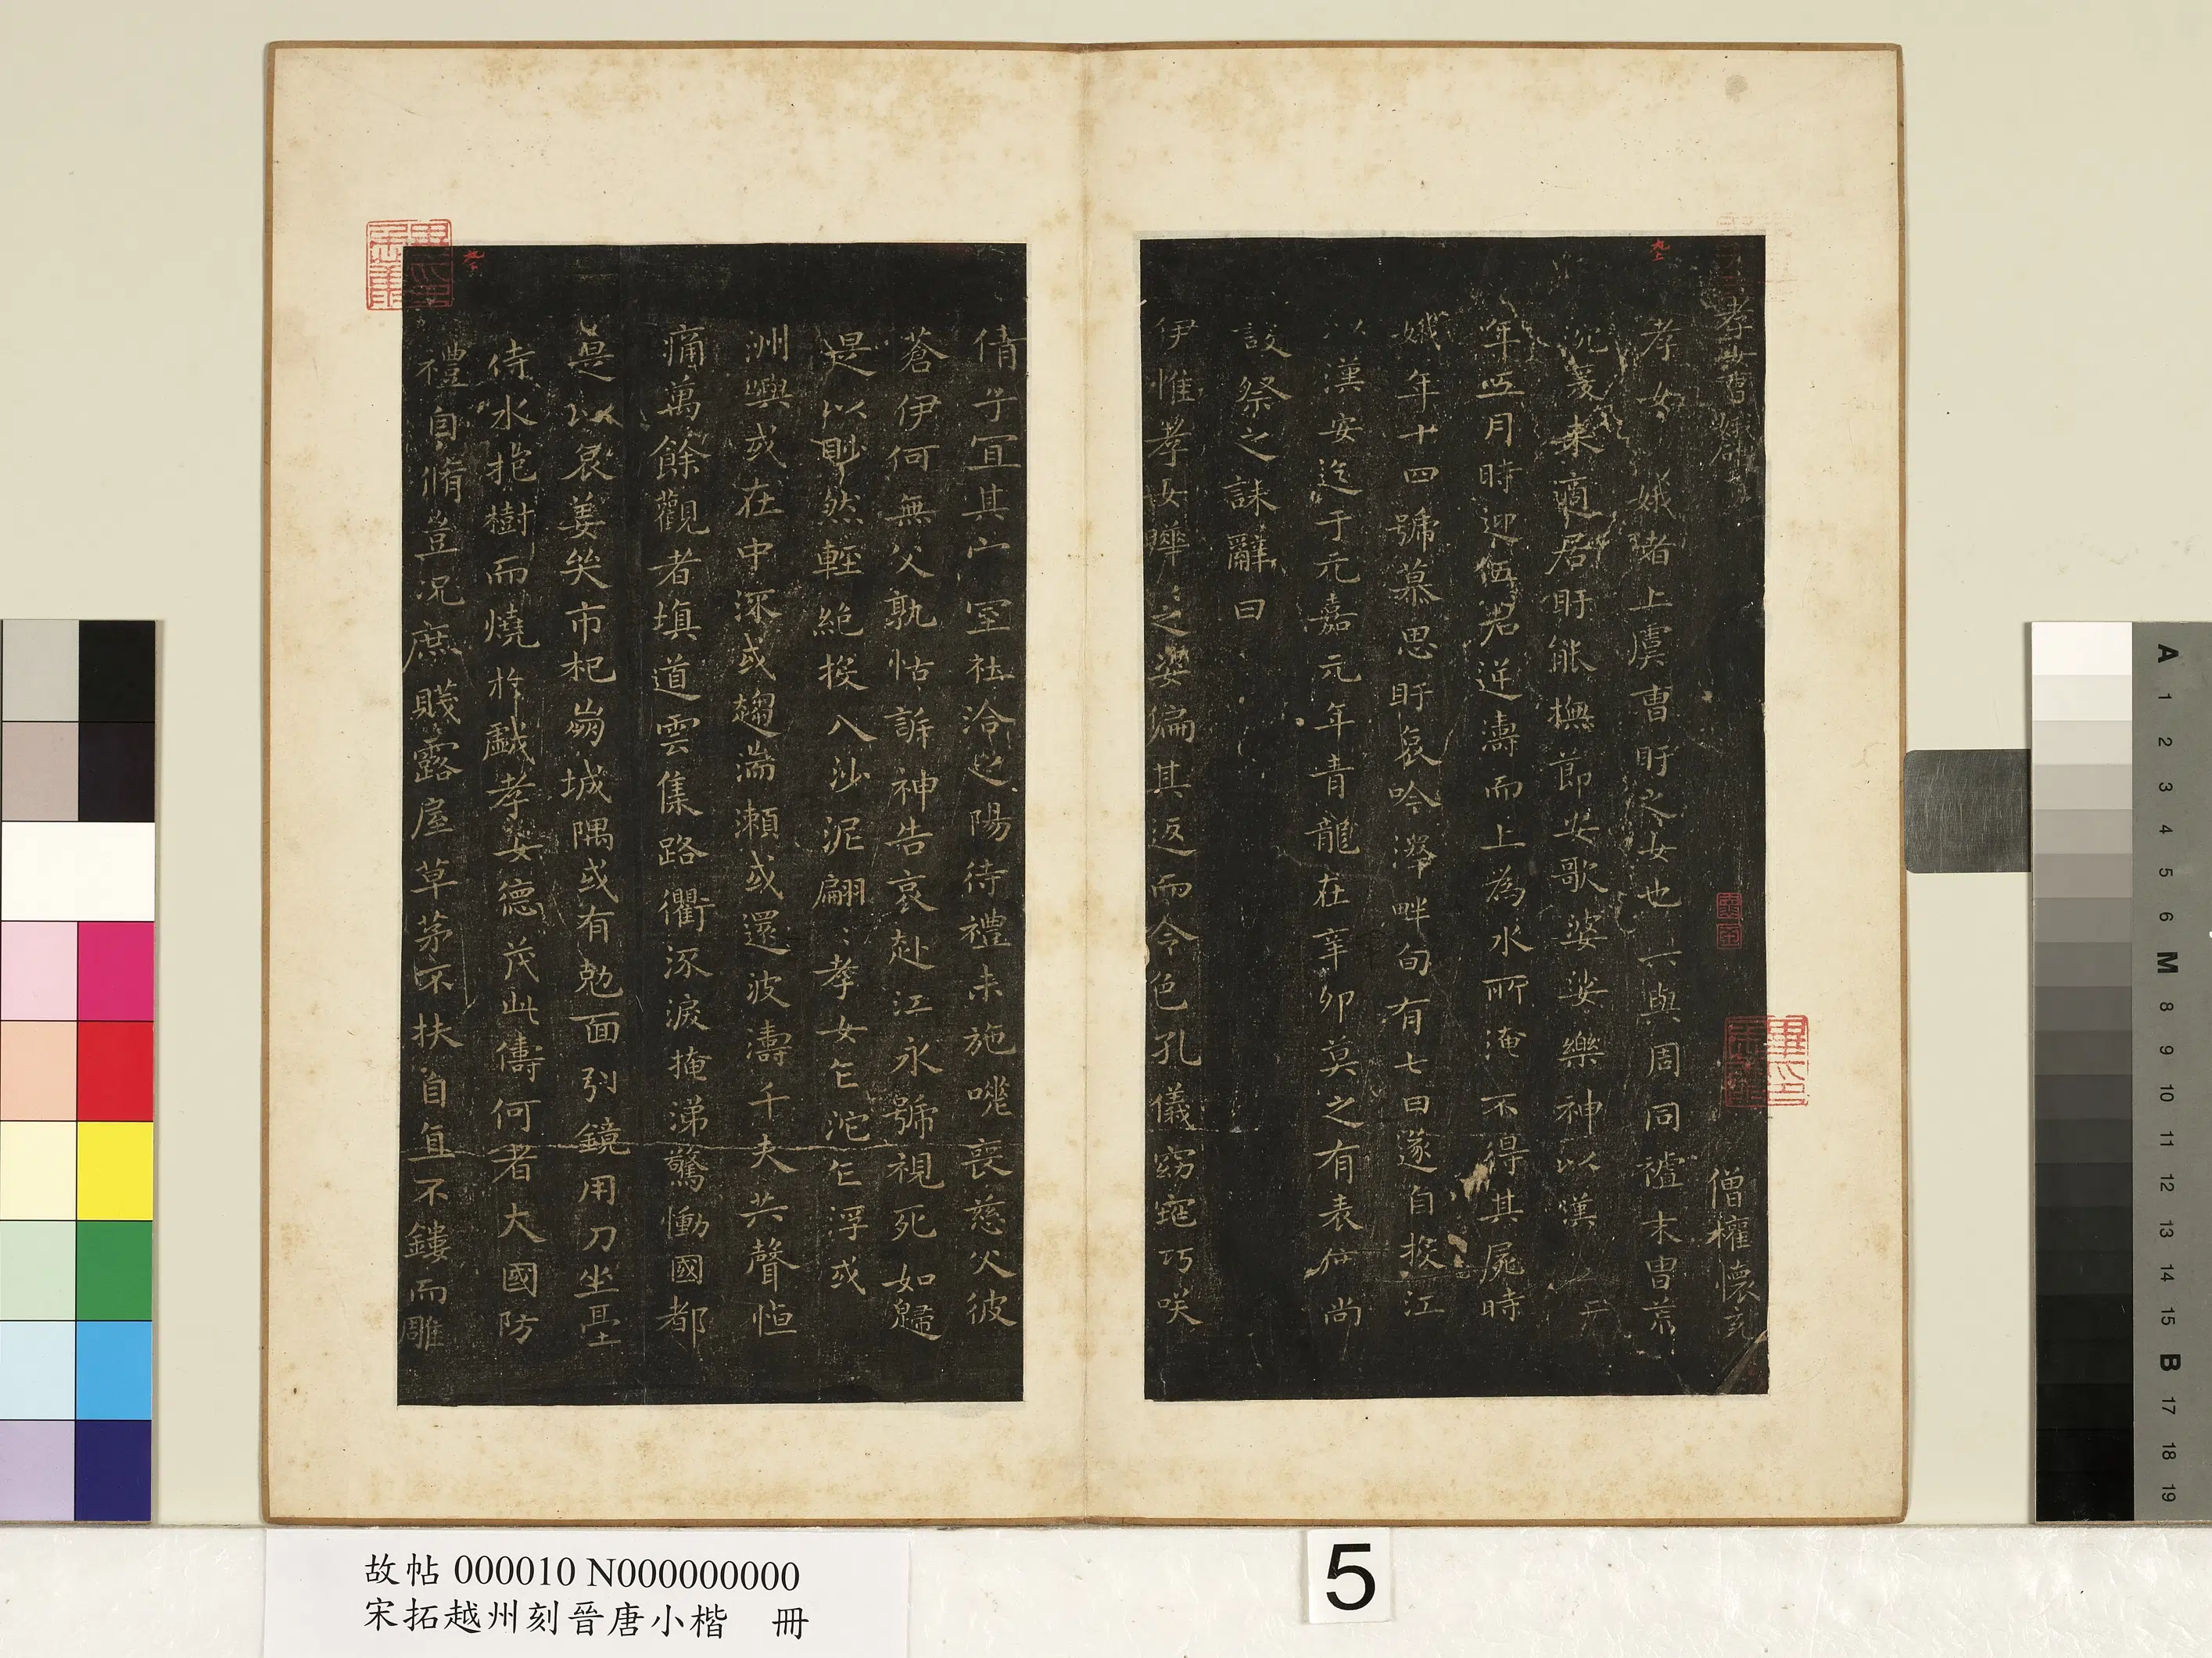 孝女曹娥碑
僧權 懷充
孝女曹娥者上虞曹盱之女也其先與周同祖末胄荒
沉爰来適居盱能撫節安歌婆娑樂神以漢安二
年五月時迎伍君逆濤而上為水所淹不得其屍時
娥年十四號慕思盱哀吟澤畔旬有七日遂自投江
以漢安迄于元嘉元年青龍在辛卯莫之有表度尚
設祭之誄辭曰
伊惟孝女曄:之姿偏其返而令色孔儀窈窕巧咲
倩兮宜其家室在洽之陽待禮未施嗟喪慈父彼
蒼伊何無父孰怙訴神告哀赴江永號視死如歸
是以眇然輕絶投入沙泥翩:孝女乍沉乍浮或
洲嶼或在中流或趨湍瀨或還波濤千夫共聲悼
痛萬餘觀者填道雲集路衢流淚掩涕驚慟國都
是以哀姜哭市杞崩城隅或有尅面引鏡用刀坐臺
待水抱樹而燒於戲孝女德茂此儔何者大國防
禮自脩豈況庶賤露屋草茅不扶自直不鏤而雕
九上
九下
5
A
1
2
3
4
5
6
M
8
9
10
11
12
13
14
15
B
17
18
19
故帖 000010 N000000000
宋拓越州刻晉唐小楷 冊